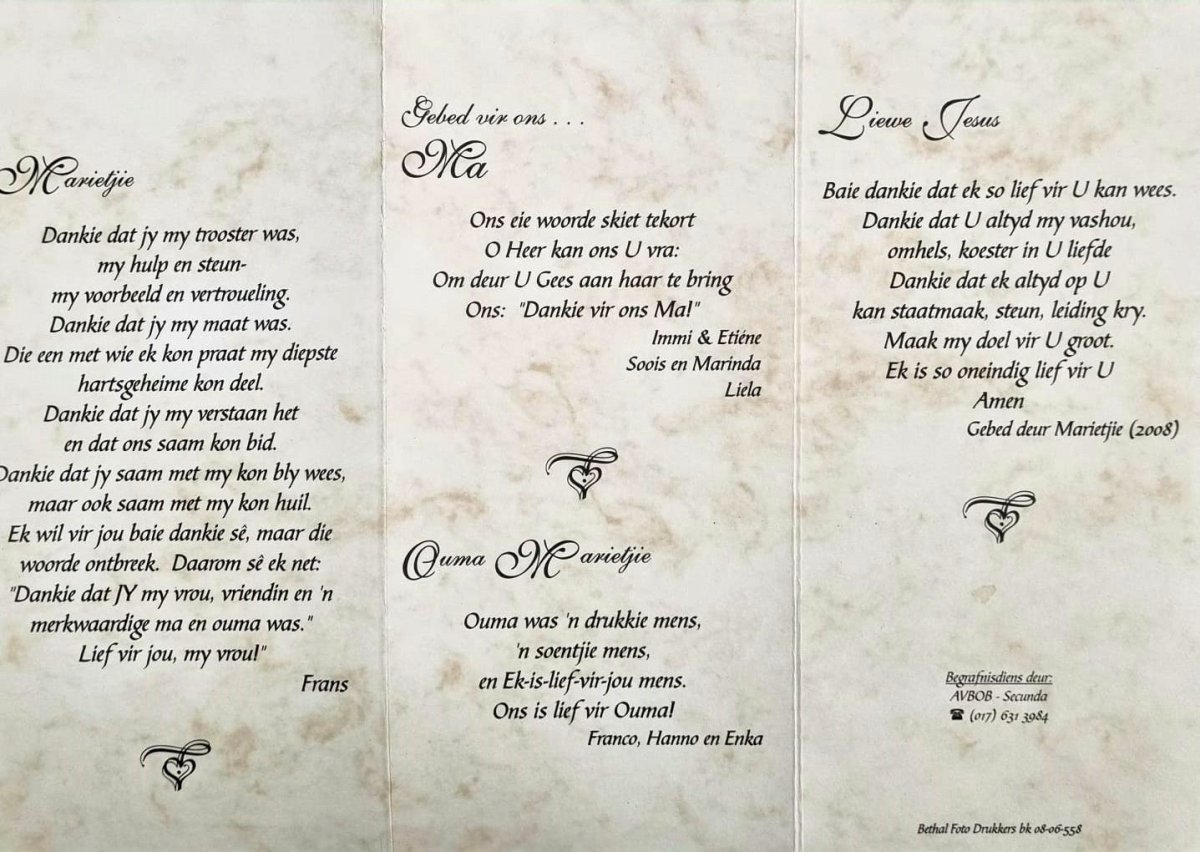 Marietjie
Dankie dat jy my trooster was,
my hulp en steun-
my voorbeeld en vertroueling.
Dankie dat jy my maat was.
Die een met wie ek kon praat my diepste
hartsgeheime kon deel.
Dankie dat jy my verstaan het
en dat ons saam kon bid.
Dankie dat jy saam met my kon bly wees,
maar ook saam met my kon huil.
Ek wil vir jou baie dankie sê, maar die
woorde ontbreek. Daarom sê ek net:
"Dankie dat JY my vrou, vriendin en 'n
merkwaardige ma en ouma was."
Lief vir jou, my vrou!"
Frans
Gebed vir ons . . .
Ma
Ons eie woorde skiet tekort
O Heer kan ons U vra:
Om deur U Gees aan haar te bring
Ons: "Dankie vir ons Ma!"
Immi & Etiéne
Soois en Marinda
Liela
Ouma Marietjie
Ouma was 'n drukkie mens,
'n soentjie mens,
en Ek-is-lief-vir-jou mens.
Ons is lief vir Ouma!
Franco, Hanno en Enka
Liewe Jesus
Baie dankie dat ek so lief vir U kan wees.
Dankie dat U altyd my vashou,
omhels, koester in U liefde
Dankie dat ek altyd op U
kan staatmaak, steun, leiding kry.
Maak my doel vir U groot.
Ek is so oneindig lief vir U
Amen
Gebed deur Marietjie (2008)
Begrafnisdiens deur:
AVBOB - Secunda
☎ (017) 631 3984
Bethal Foto Drukkers bk 08-06-558